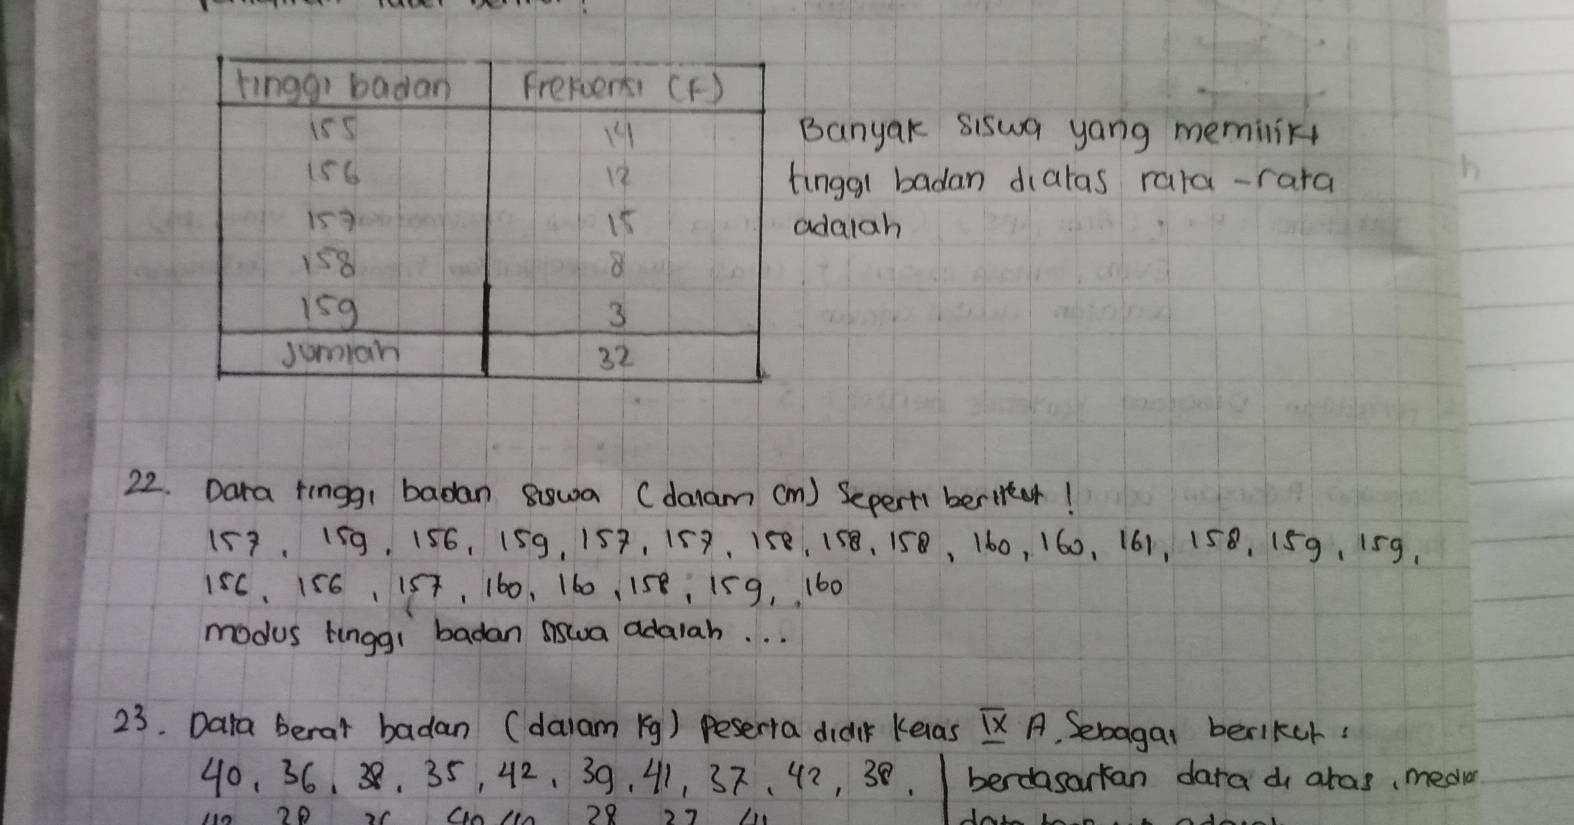 tinggi badan Frekuensi (F)
155 14
156 12
157 15
158 8
159 3
Jumlah 32
Banyak siswa yang memiliki
tinggi badan diatas rata-rata
adalah
22. Data tinggi badan siswa (dalam cm) seperti berikut!
157, 159, 156, 159, 157, 157, 158, 158, 158, 160, 160, 161, 158, 159, 159,
156, 156, 157, 160, 160, 158, 159, 160
modus tinggi badan siswa adalah ...
23. Data berat badan (dalam kg) Peserta didik Kelas IX A. Sebagai berikut:
40, 36, 38, 35, 42, 39, 41, 37, 42, 38,
berdasarkan data di atas, median